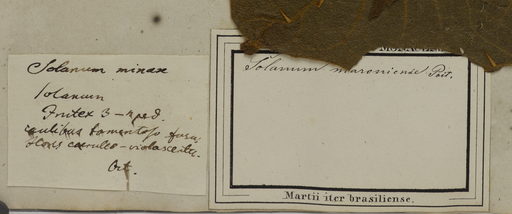 Solanum minax
Solanum
Frutex 3-4 ped.
caulibus tomentoso fusc.
Flores caeruleo-violascentes.
Oct.
Solanum maroniense Poit.
Martii iter brasiliense.